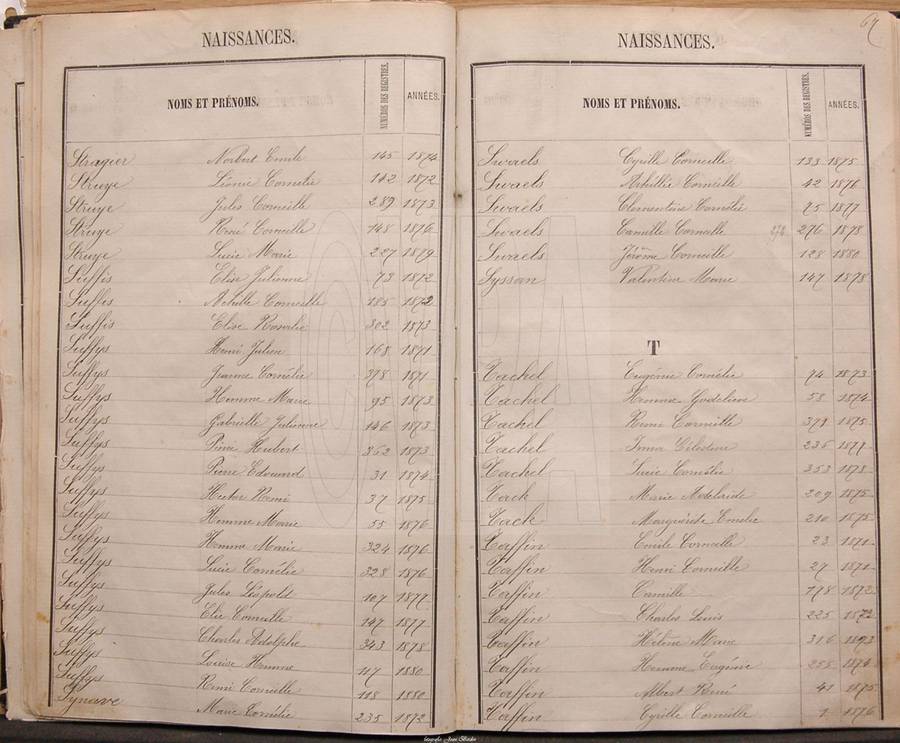 NAISSANCES.
NOMS ET PRÉNOMS. NUMÉROS DES REGISTRES. ANNÉES.
Stragier Norbert Emile 145 1874
Struye Léonie Cornélie 142 1872
Struye Jules Corneille 289 1873
Struye René Corneille 148 1876
Struye Lucie Marie 227 1879
Suffis Elise Julienne 73 1872
Suffis Achille Corneille 185 1872
Suffis Elise Rosalie 302 1873
Suffys Henri Julien 168 1871
Suffys Jeanne Cornélie 378 1871
Suffys Hemme Marie 95 1873
Suffys Gabrielle Julienne 146 1873
Suffys Hubert 362 1873
Suffys Pierre Edouard 31 1874
Suffys Hector Remi 37 1875
Suffys Hemme Marie 55 1876
Suffys Hemme Marie 324 1876
Suffys Lucie Cornélie 328 1876
Suffys Jules Léopold 107 1877
Suffys Elie Corneille 147 1877
Suffys Charles Adolphe 343 1878
Suffys Louise Hemme 117 1880
Suffys Remi Corneille 118 1880
Synave Marie Cornélie 235 1872
64
NAISSANCES.
NOMS ET PRÉNOMS. NUMÉROS DES REGISTRES. ANNÉES.
Swaels Cyrille Corneille 133 1875
Swaels Corneille 42 1876
Swaels Clementine Cornélie 75 1877
Swaels Camille Corneille 276 1878
Swaels Jérôme Corneille 128 1880
Syssan Valentine Marie 147 1878
T
Tachel Eugénie Cornélie 74 1873
Tachel Hemme Godelieve 58 1874
Tachel Remi Corneille 379 1875
Tachel Irma Célestine 235 1877
Tachel Lucie Cornélie 353 1878
Tack Marie Adelaïde 209 1875
Tack Marguérite Emelie 210 1875
Taffin Emile Corneille 23 1871
Taffin Henri Corneille 27 1871
Taffin Camille 178 1872
Taffin Charles Louis 225 1872
Taffin Hélène Marie 316 1873
Taffin Hemme Eugénie 255 1874
Taffin Albert René 41 1875
Taffin Cyrille Corneille 1 1876